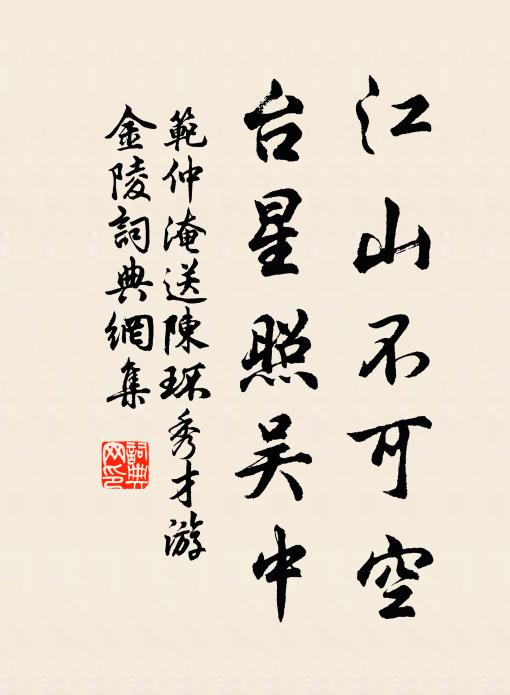 江山不可空
台星照吴中
範仲淹送陳琢秀才游
金陵詞典網集
詞典
网印